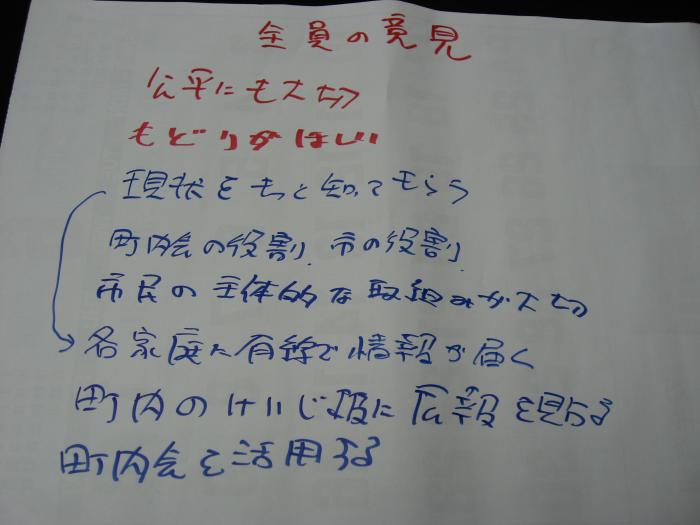 全員の意見
公平にも大切
もどりがほしい
現状をもっと知ってもらう
町内会の役割 市の役割
市民の主体的な取組みが大切
各家庭に有線で情報が届く
町内のけいじ板に広報を見る
町内会を活用する